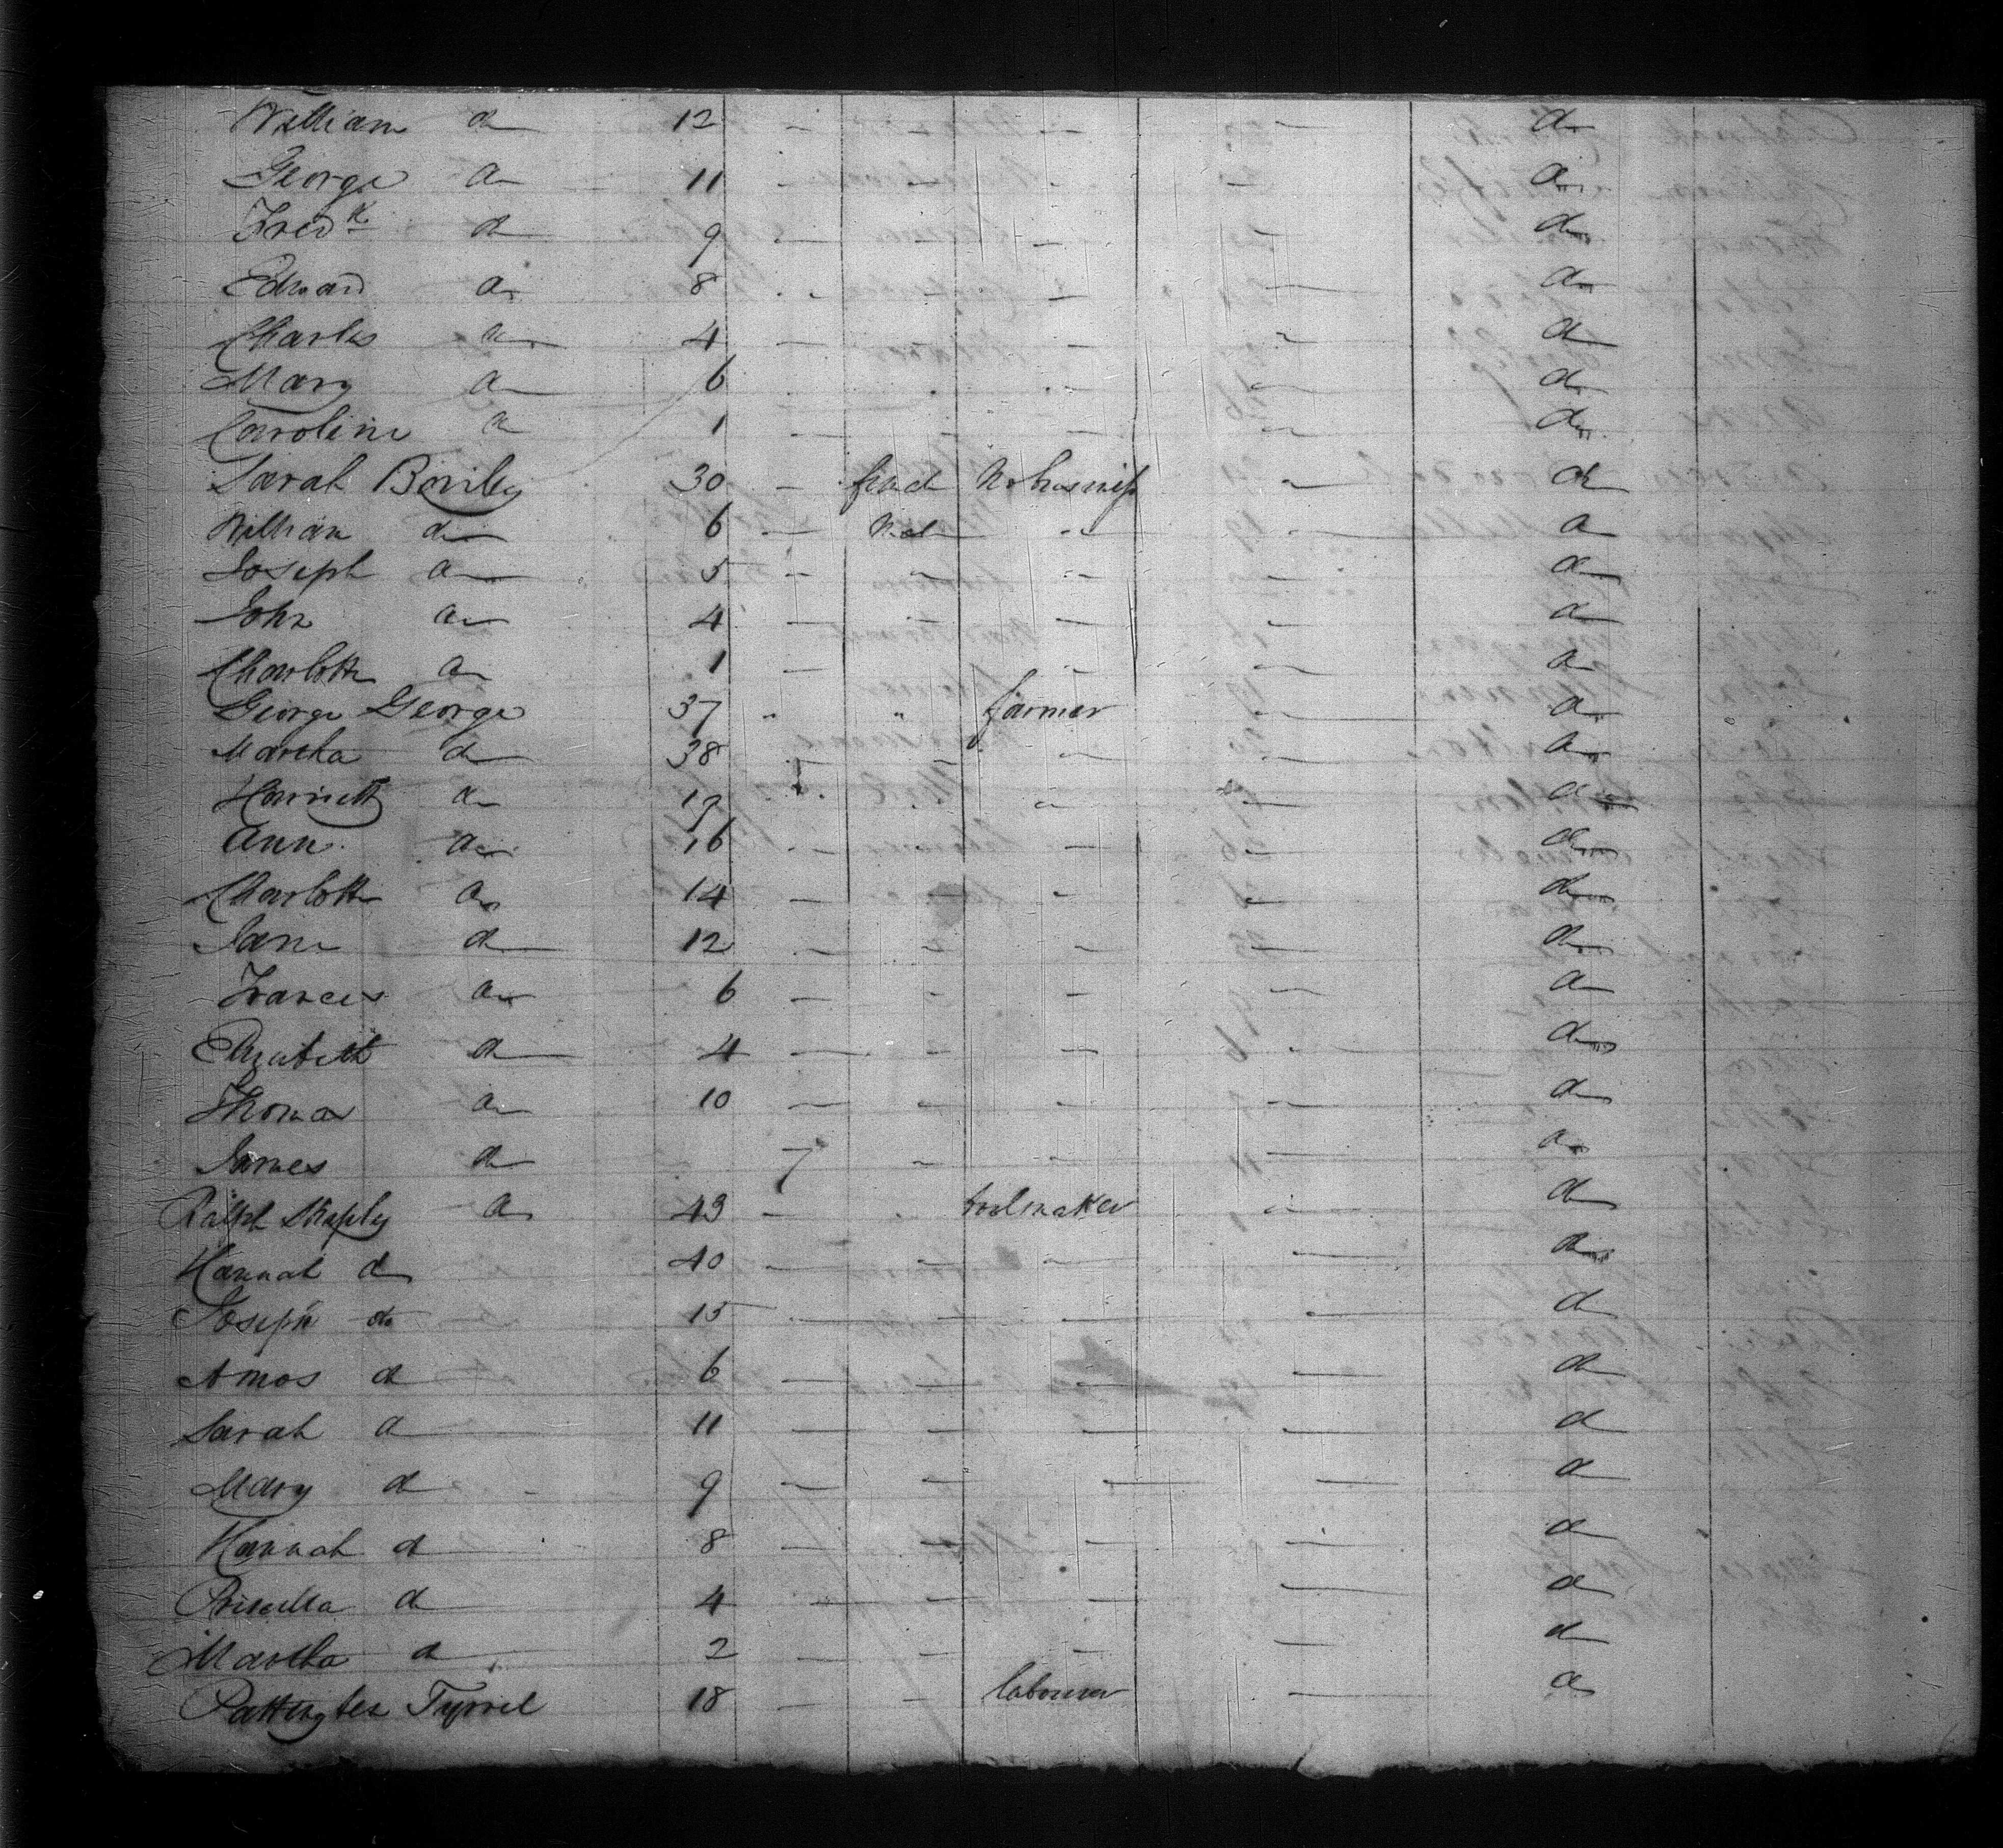 William do 12 - - - - do
George do 11 - - - - do
Fredk do 9 - - - - do
Edward do 8 - - - - do
Charles do 4 - - - - do
Mary do 6 - - - - do
Caroline do 1 - - - - do
Sarah 30 - - do
William do 6 - - - do
Joseph do 5 - - - - do
John do 4 - - - - do
Charlotte do 1 - - - - do
George George 37 " " farmer - do
Martha do 38 - - - - do
Harriett do 19 - - - - do
Ann do 16 - - - - do
Charlotte do 14 - - - - do
Jane do 12 - - - - do
Frances do 6 - - - - do
Elizabeth do 4 - - - - do
Thomas do 10 - - - - do
James do 7 - - - do
Ralph Shaply do 43 - - toolmaker - do
Hannah do 40 - - - - do
Joseph do 15 - - - - do
Amos do 6 - - - - do
Sarah do 11 - - - - do
Mary do 9 - - - - do
Hannah do 8 - - - - do
Priscilla do 4 - - - - do
Martha do 2 - - - - do
Tyrrel 18 - - labourer - do